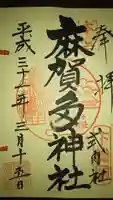 奉拝
式内社
麻賀多神社
平成三十一年二月十五日